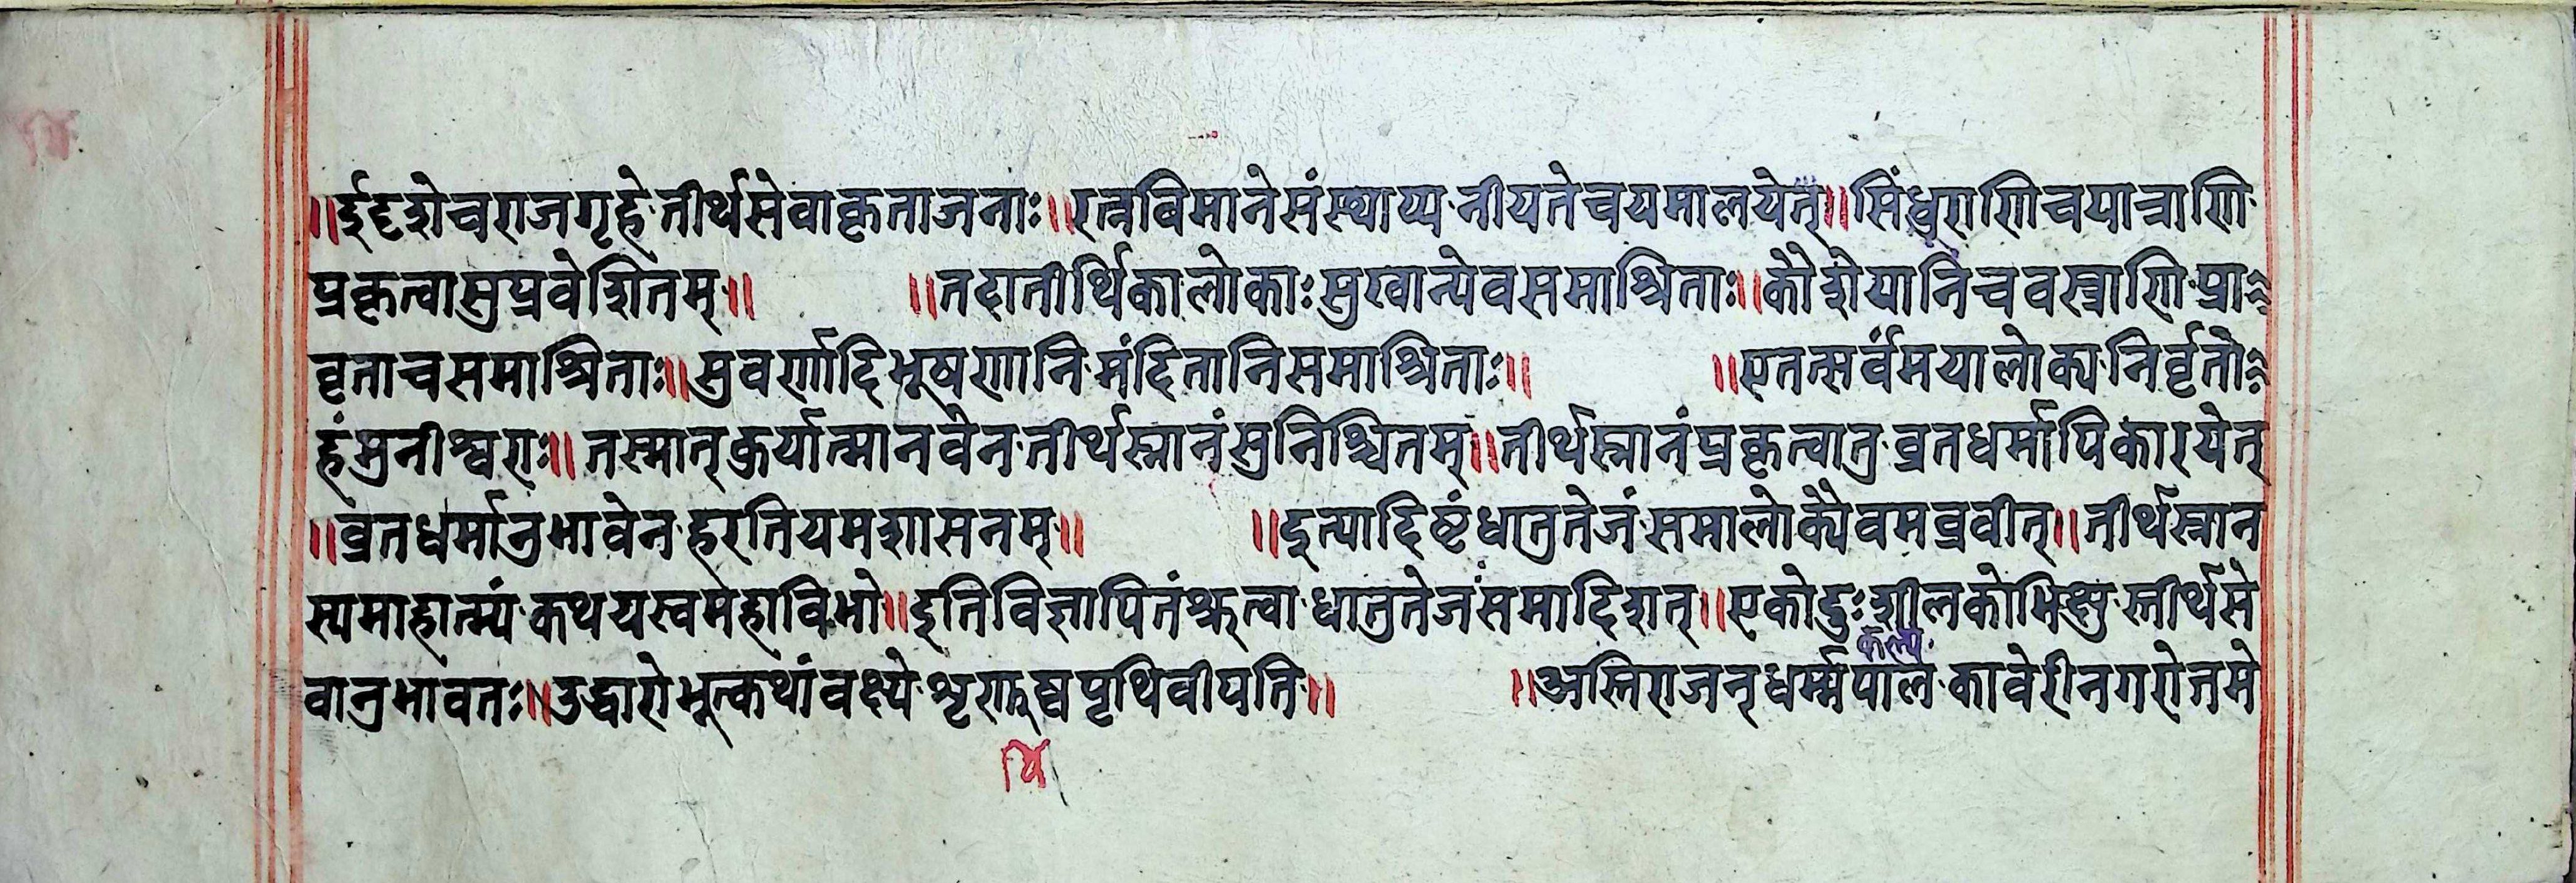 ॥ईदृशेचराजगृहे·तीर्थसेवाकृताजनाः॥रत्नविमानेसंस्थाप्य·नीयतेचयमालयेत्॥सिंधुराणिचयात्राणि·
प्रकृत्वासुप्रवेशितम्॥ ॥तदातीर्थिकालोकाःसुखान्येवसमाश्रिताः॥कौशेयानिचवस्त्राणि·प्रा
वृताचसमाश्रिताः॥सुवर्णादिभूषणानि·मंदितानिसमाश्रिताः॥ ॥एतत्सर्वंमयालोक्य·निर्वृतो
हंमुनीश्वराः॥तस्मात्कुर्यात्मानवेन·तीर्थस्नानंसुनिश्चितम्॥तीर्थस्नानंप्रकृत्वातु·व्रतधर्मापिकारयेत्
॥व्रतधर्मानुभावेन·हरतियमशासनम्॥ ॥इत्यादिष्टंधातुतेजं·समालोक्यैवमब्रवीत्॥तीर्थस्नान
स्यमाहात्म्यं·कथयस्वमहाविभो॥इतिविज्ञापितंश्रुत्वा·धातुतेजंसमादिशत्॥एकोदुःशीलकोभिक्षु·स्तीर्थसे
कल्प
वानुभावतः॥उद्धारोभूत्कथांवक्ष्ये·शृणुष्वपृथिवीपति·॥ ॥अस्तिराजन्धर्म्मपाल·कावेरीनगरोत्तमे